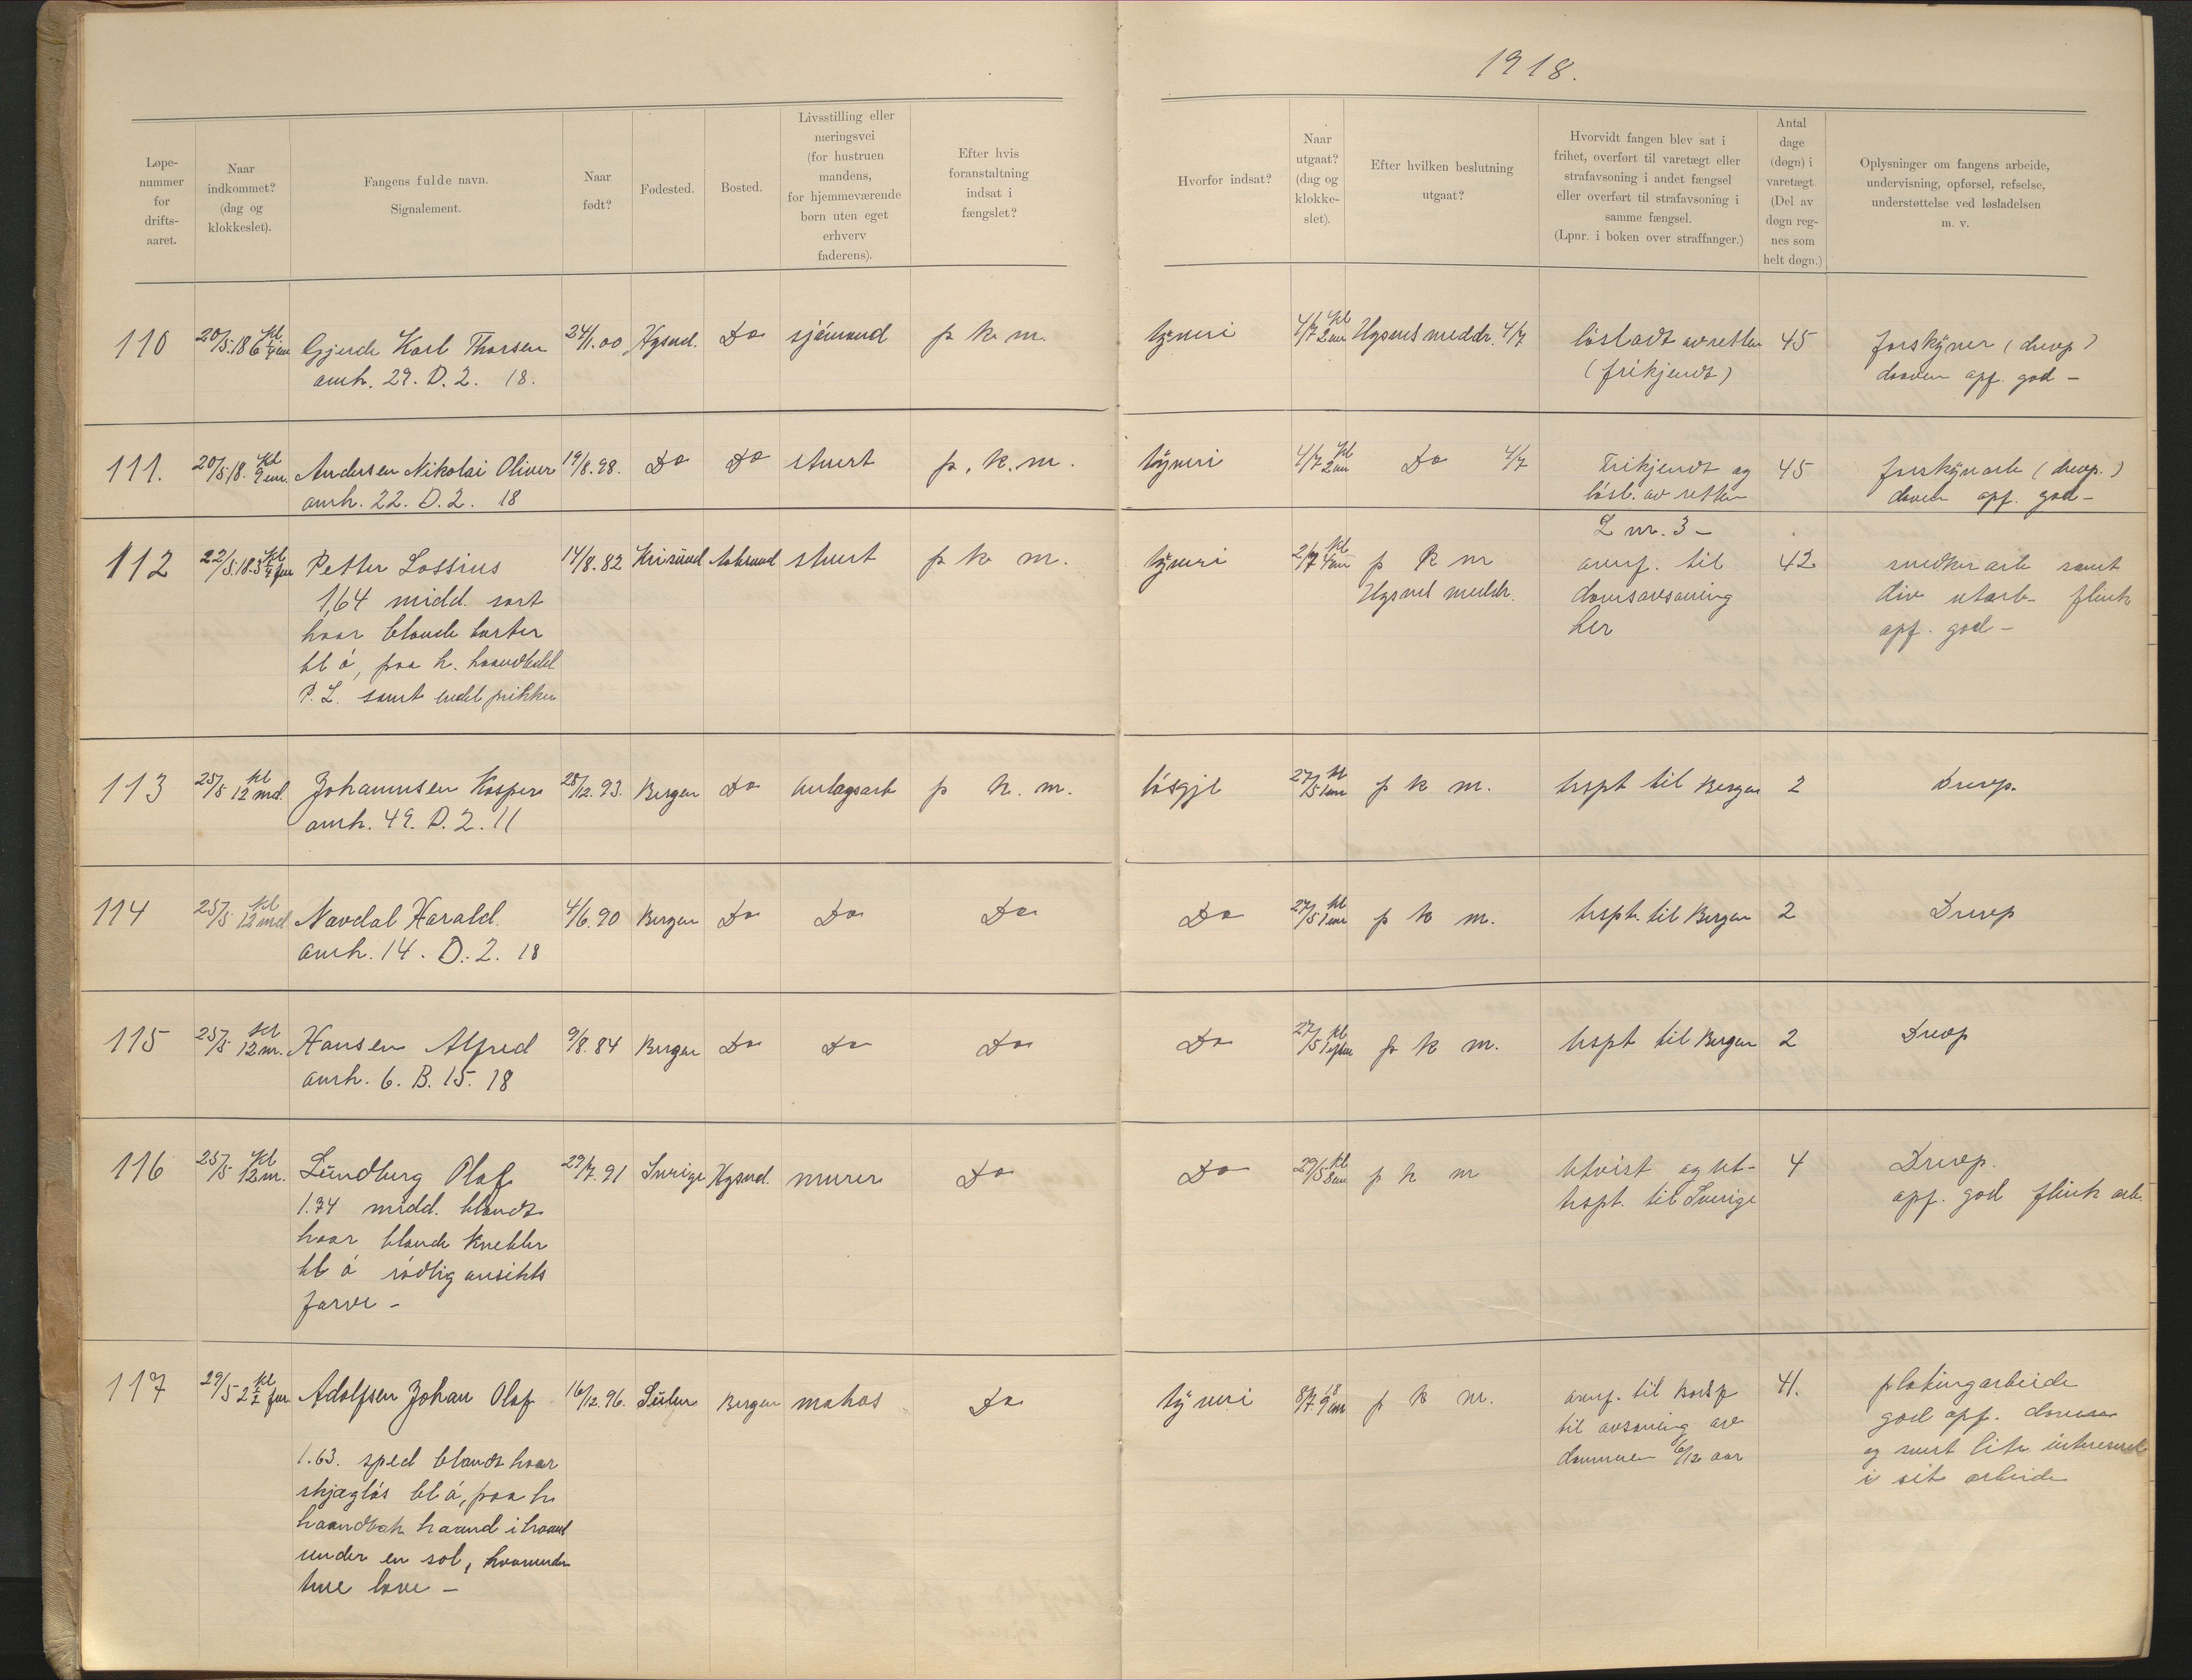 1918.
Løpe-
nummer
for
drifts-
aaret.
Naar
indkommet?
(dag og
klokkeslet).
Fangens fulde navn.
Signalement.
Naar
født?
Fødested.
Bosted.
Livsstilling eller
næringsvei
(for hustruen
mandens,
for hjemmeværende
børn uten eget
erhverv
faderens).
Efter hvis
foranstaltning
indsat i
fængslet?
Hvorfor indsat?
Naar
utgaat?
(dag og
klokke-
slet).
Efter hvilken beslutning
utgaat?
Hvorvidt fangen blev sat i
frihet, overført til varetægt eller
strafavsoning i andet fængsel
eller overført til strafavsoning i
samme fængsel.
(Lpnr. i boken over straffanger.)
Antal
dage
(døgn) i
varetægt
(Del av
døgn reg-
nes som
helt døgn.)
Oplysninger om fangens arbeide,
undervisning, opførsel, refselse,
understøttelse ved løsladelsen
m. v.
110 20/5.18 Kl 6 Gjerde Karl Thorsen 24/1.00 Hgsud. Do sjömand p k m. tyveri 4/7 Kl 2 em Hgsuds meddr. 4/7 lösladt av retten 45 forskjner (drevp)
anh. 29. D. 2. 18. (frikjendt) doven opf. god –
111. 20/5.18. Kl 9 em. Andersen Nikolai Oliver 19/8.98. Do Do stuert p. k. m. tyveri 4/7 Kl 2 em Do 4/7 Frikjendt og 45 (drevp.)
anh. 22. D. 2. 18 lösl. av retten doven opf. god –
L nr. 3 –
112 22/5.18. Kl Petter Lossius 14/8.82 Krisund stuert p k m. tyveri 2/7 Kl p k m overf. til 42 snedker arb samt
1,64 midd. sort Hgsud meddr. domsavsoning div utarb. flink
haar blonde barter her opf. god –
bl ö, paa h.
P. L. samt endel prikker
113 25/5 Kl 12 md. Johannesen Kasper 28/12.93. Bergen Do anlagsarb p k. m. lösgjl 27/5 Kl 1 em p k m. trspt til Bergen 2 Drevp.
anh. 49. D. 2. 11
114 25/5 Kl 12 md Navdal Harald. 4/6.90 Bergen Do Do Do Do 27/5 Kl 1 em p k m. trspt. til Bergen 2 Drevp
anh. 14. D. 2. 18
115 25/5 Kl 12 m. Hansen Alfred 9/8.84 Bergen Do Do Do Do 27/5 Kl p k m. trspt til Bergen 2 Drevp
anh. 6. B. 15. 18
116 25/5 Kl 12 m. Lundberg Olaf 29/7.91 Sverige Hgsud. murer Do Do 29/5 Kl 8 em p k m utvist og ut- 4 Drevp.
1.74 midd. blondt trspt. til Sverige opf. god flink arb.
haar blonde knebler
bl ö rödlig ansikts
farve –
117 29/5 Kl 2 1/2 fm Adolfsen Johan Olaf 16/12.96. Bergen matros Do tyveri 8/7.18 9 em p k m. overf. til Kredsf 41.
til avsoning av god opf.
1.63. sped blondt haar dommen 6/12 aar og svert lite interesseret
skjæglös bl ö, paa h i sit arbeide
haandbak haand i haand
under en sol, hvorunder
true love –